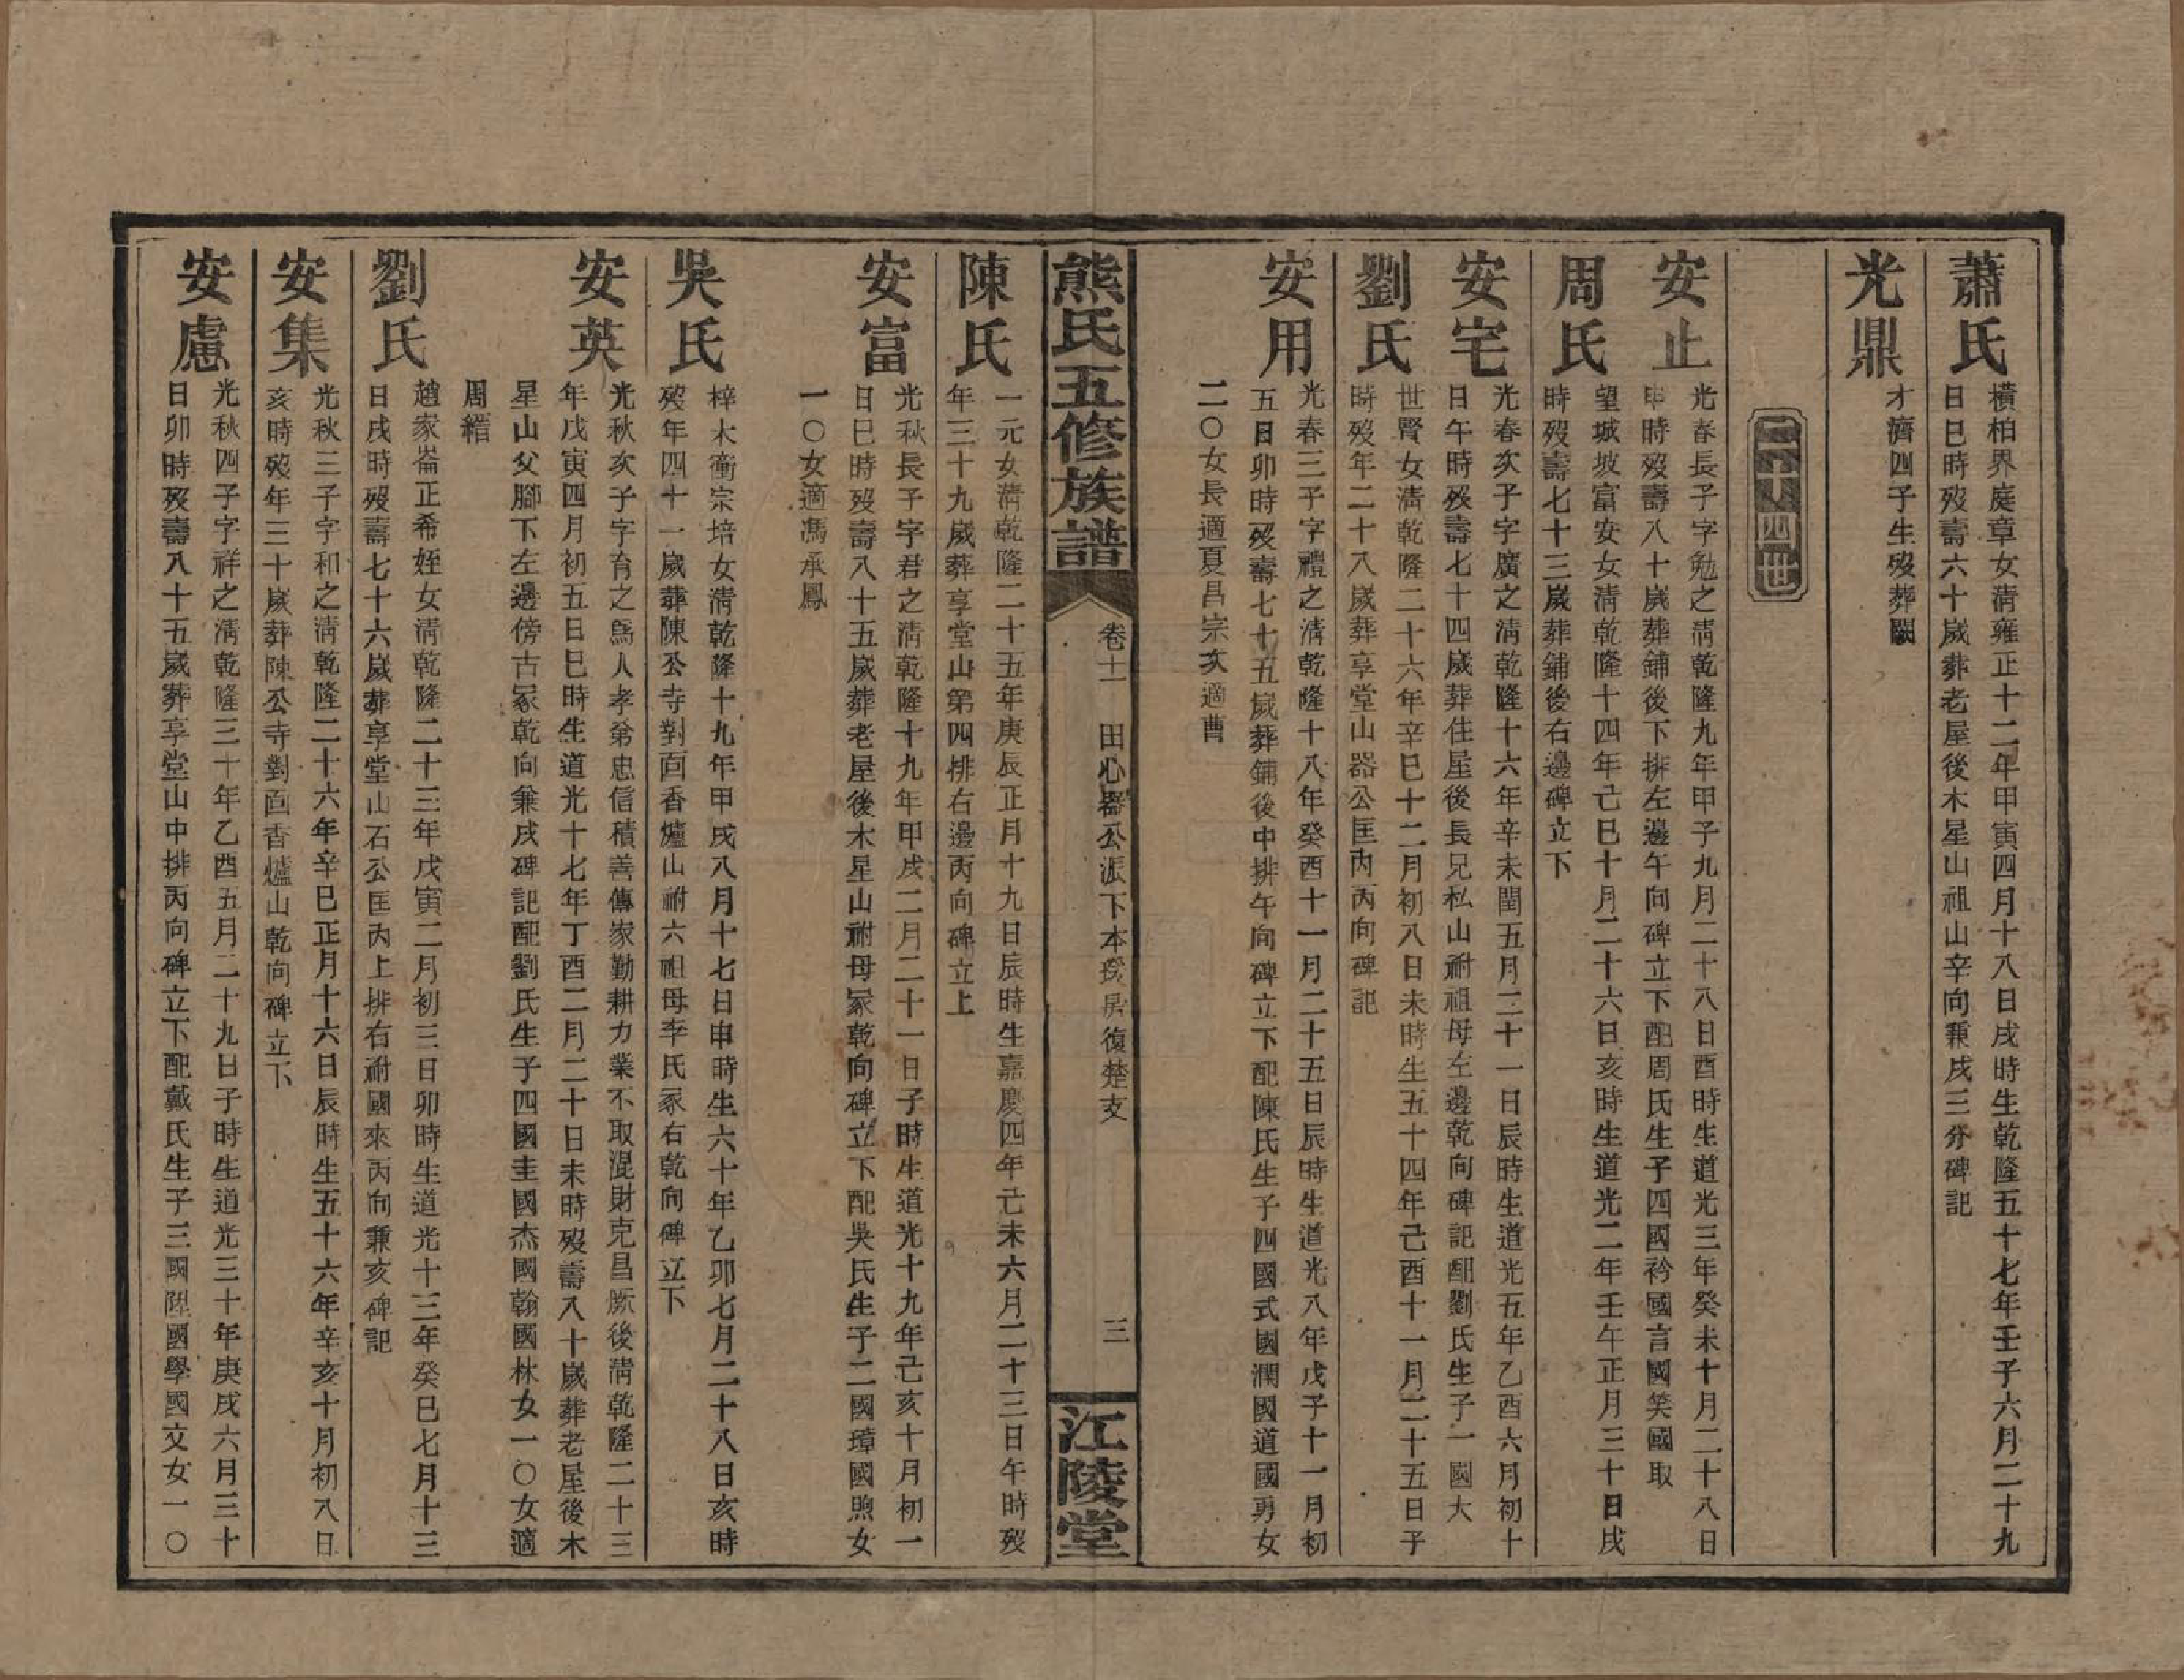 蕭氏
橫柏界庭章女清雍正十二年甲寅四月十八日戌時生乾隆五十七年壬子六月二十九
日巳時歿壽六十歲葬老屋後木星山祖山辛向兼戌三分碑記
光鼎
才濟四子生歿葬闕
二十四世
安止
光春長子字勉之清乾隆九年甲子九月二十八日酉時生道光三年癸未十月二十八日
申時歿壽八十歲葬鋪後下排左邊午向碑立下配周氏生子四國衿國言國笑國取
周氏
望城坡富安女清乾隆十四年己巳十月二十六日亥時生道光二年壬午正月三十日戌
時歿壽七十三歲葬鋪後右邊碑立下
安宅
光春次子字廣之清乾隆十六年辛未閏五月三十一日辰時生道光五年乙酉六月初十
日午時歿壽七十四歲葬住屋後長兄私山祔祖母左邊乾向碑記配劉氏生子一國大
劉氏
世賢女清乾隆二十六年辛巳十二月初八日未時生五十四年己酉十一月二十五日子
時歿年二十八歲葬享堂山器公匡內丙向碑記
安用
光春三子字禮之清乾隆十八年癸酉十一月二十五日辰時生道光八年戊子十一月初
五日卯時歿壽七十五歲葬鋪後中排午向碑立下配陳氏生子四國式國潤國道國勇女
二〇女長適夏昌宗次適曹
熊氏五修族譜
卷十一 田心器公派下本茂房復楚支
三
江陵堂
陳氏
一元女清乾隆二十五年庚辰正月十九日辰時生嘉慶四年己未六月二十三日午時歿
年三十九歲葬享堂山第四排右邊丙向碑立上
安富
光秋長子字君之清乾隆十九年甲戌二月二十一日子時生道光十九年己亥十月初一
日巳時歿壽八十五歲葬老屋後木星山祔母冢乾向碑立下配吳氏生子二國璋國煦女
一〇女適馮承鳳
吳氏
梓木衝宗培女清乾隆十九年甲戌八月十七日申時生六十年乙卯七月二十八日亥時
歿年四十一歲葬陳公寺對面香爐山祔六祖母李氏冢右乾向碑立下
安英
光秋次子字育之爲人孝弟忠信積善傳家勤耕力業不取混財克昌厥後清乾隆二十三
年戊寅四月初五日巳時生道光十七年丁酉二月二十日未時歿壽八十歲葬老屋後木
星山父腳下左邊傍古冢乾向兼戌碑記配劉氏生子四國圭國杰國翰國林女一〇女適
周縉
劉氏
趙家崙正希姪女清乾隆二十三年戊寅二月初三日卯時生道光十三年癸巳七月十三
日戌時歿壽七十六歲葬享堂山石公匡丙上排右祔國來丙向兼亥碑記
安集
光秋三子字和之清乾隆二十六年辛巳正月十六日辰時生五十六年辛亥十月初八日
亥時歿年三十歲葬陳公寺對面香爐山乾向碑立下
安慮
光秋四子字祥之清乾隆三十年乙酉五月二十九日子時生道光三十年庚戌六月三十
日卯時歿壽八十五歲葬享堂山中排丙向碑立下配戴氏生子三國陞國學國文女一〇